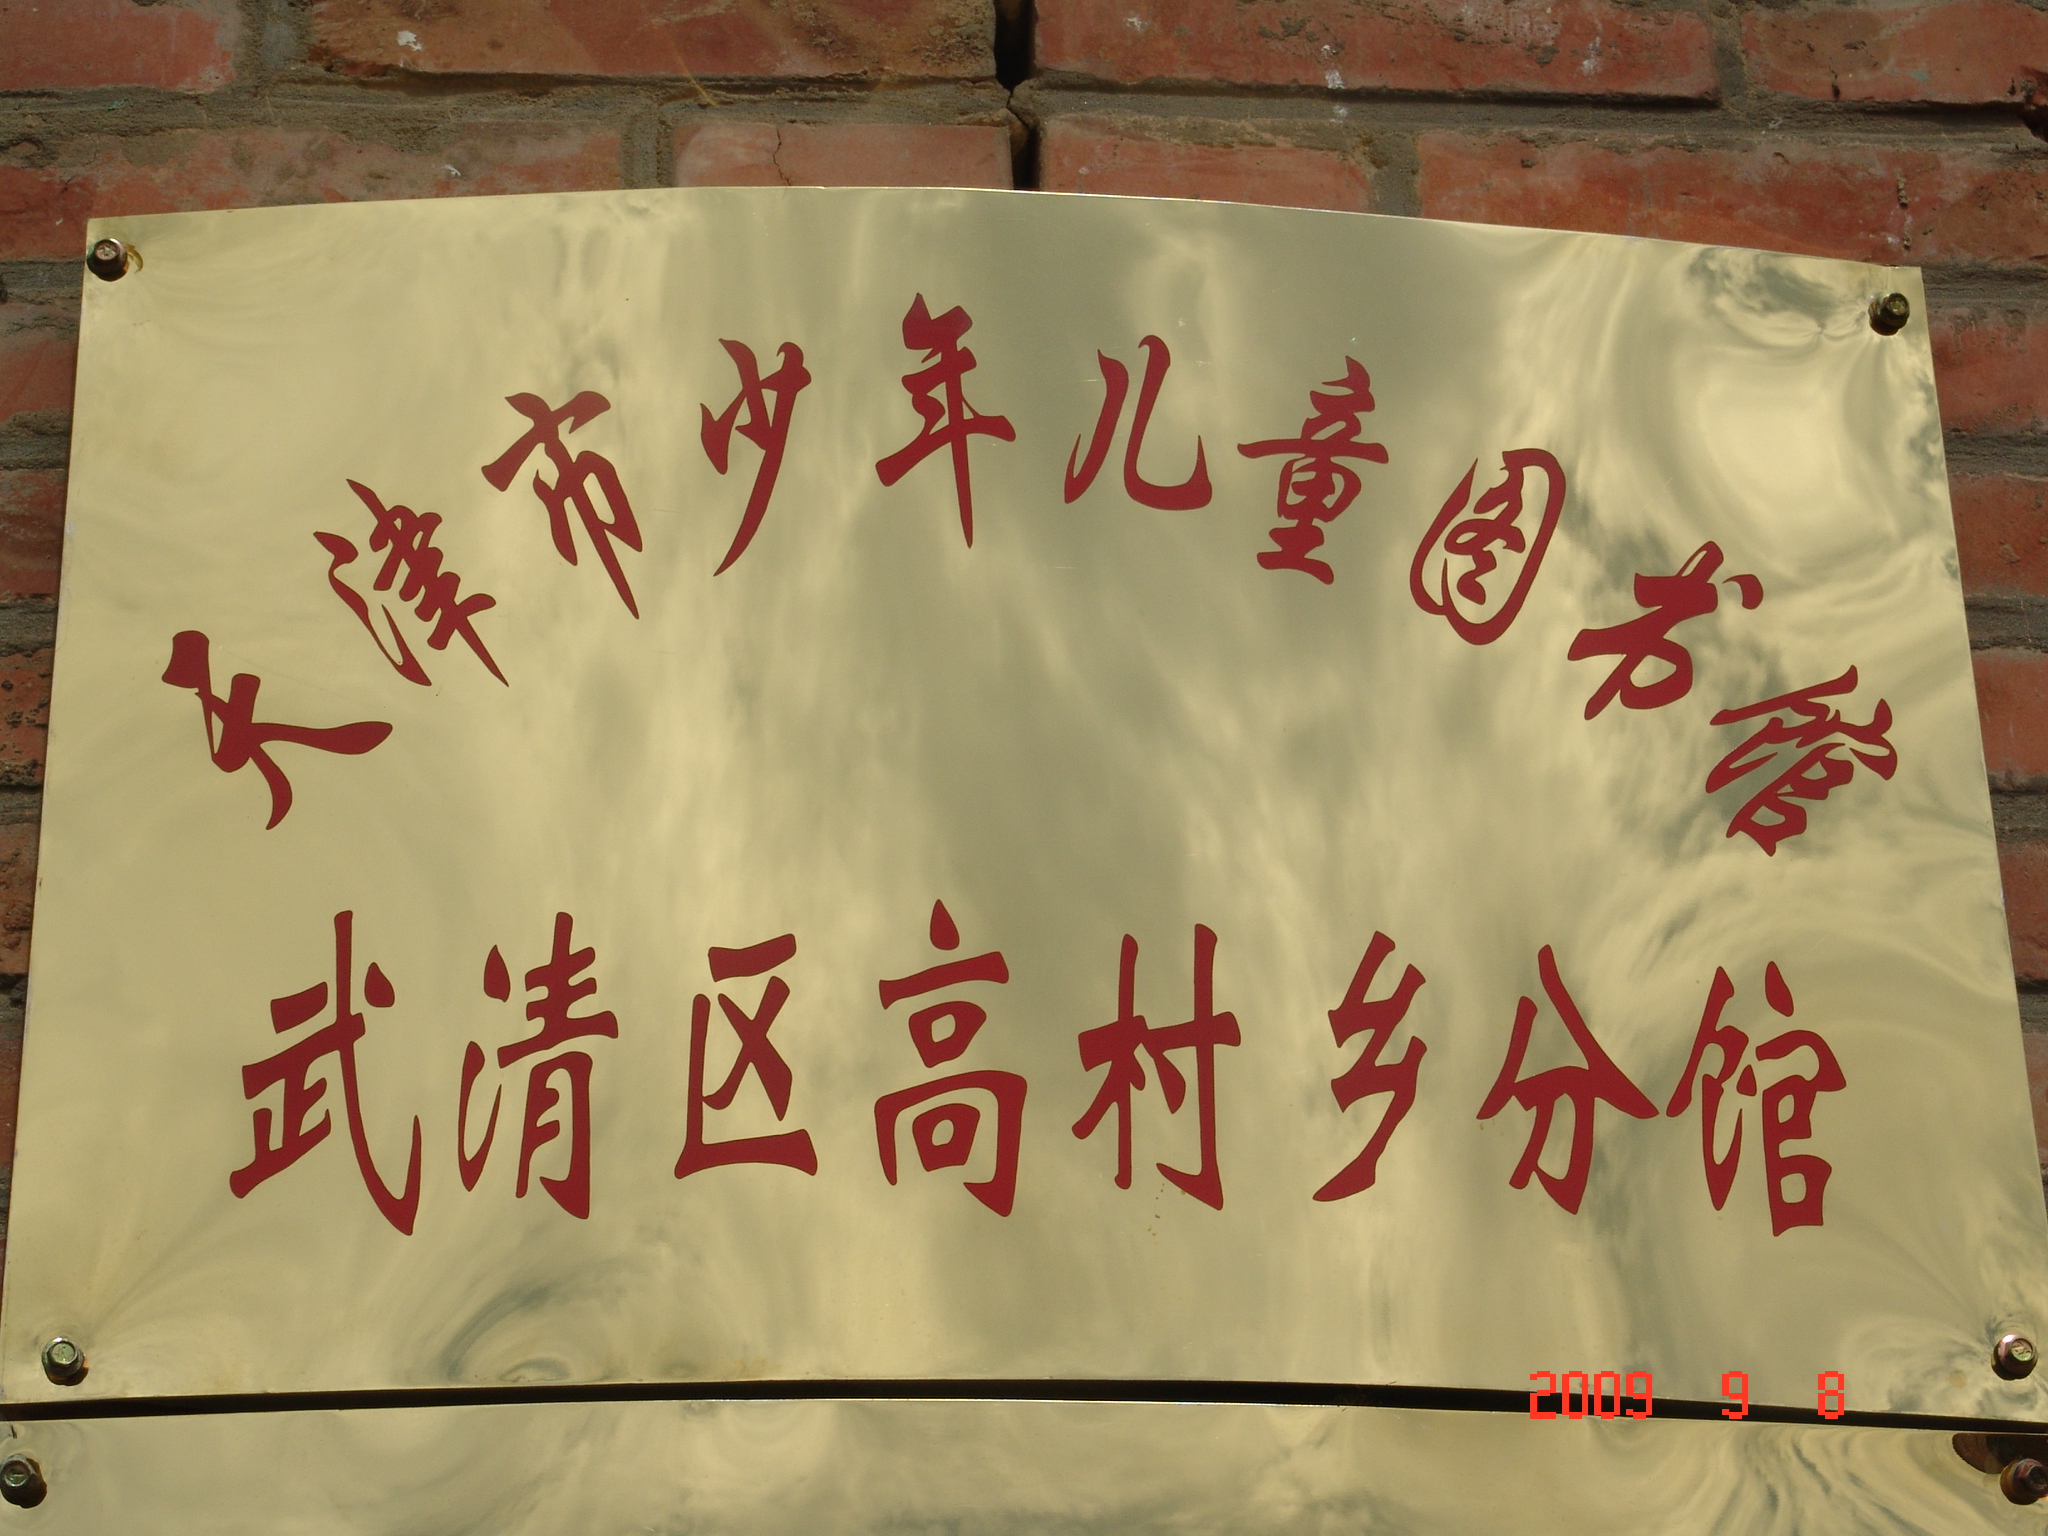 天津市少年儿童图书馆
武清区高村乡分馆
2009 9 8